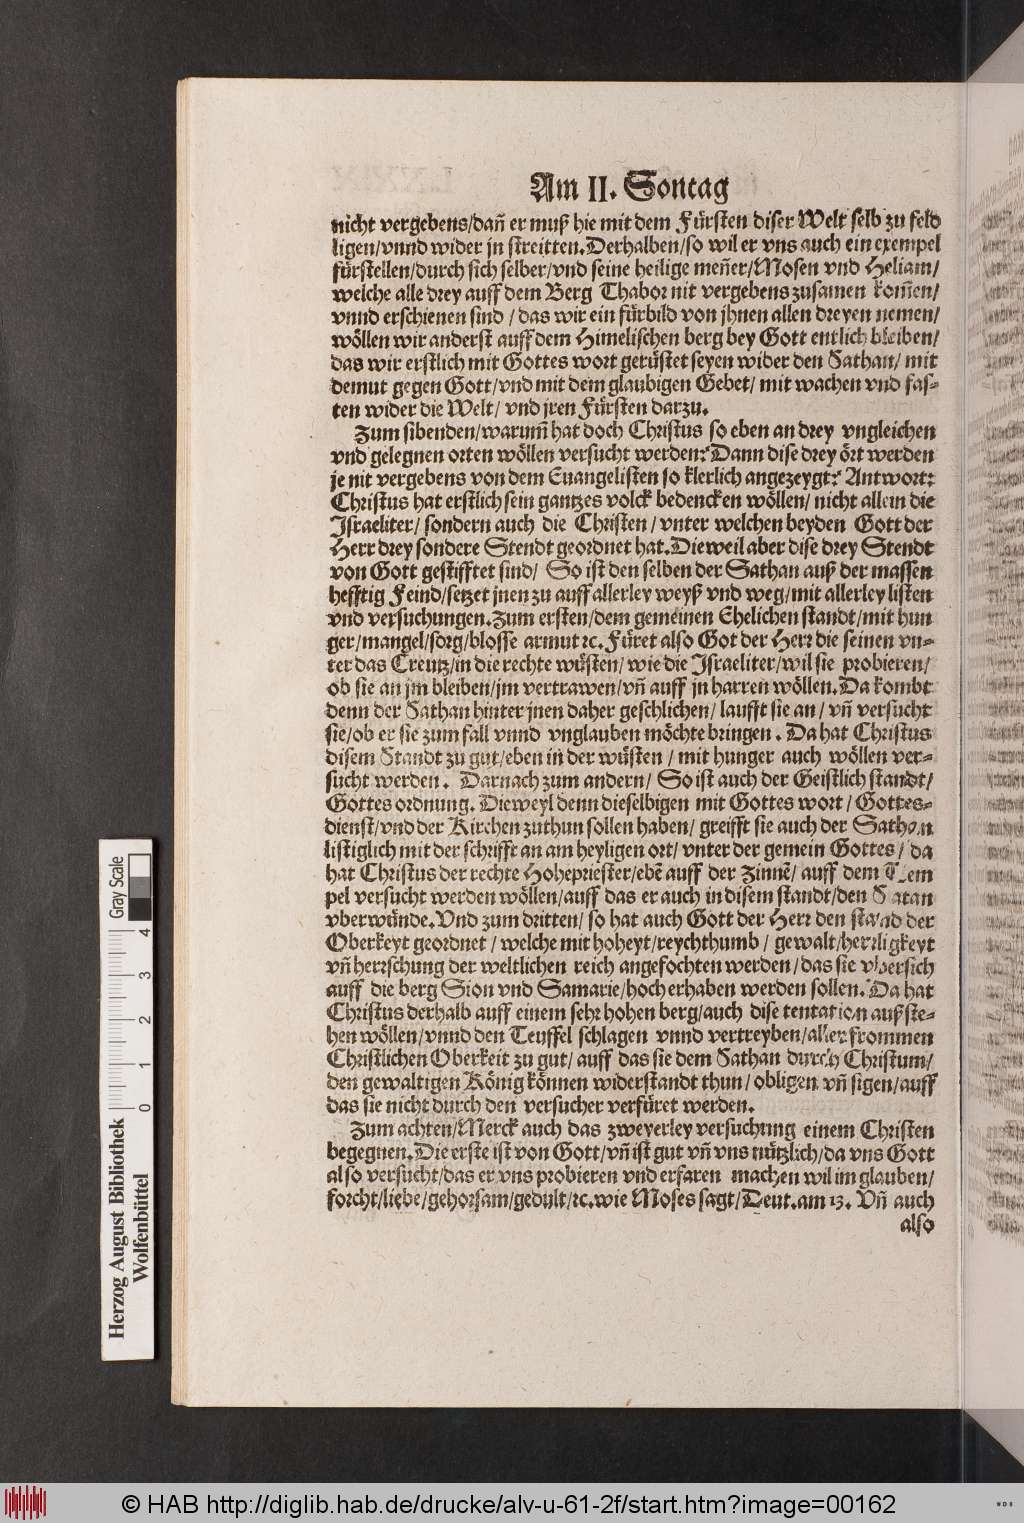 Am II. Sontag
nicht vergebens/dañ er muß hie mit dem Fürsten diser Welt selb zu feld
ligen/vnnd wider jn streitten. Derhalben/so wil er vns auch ein exempel
fürstellen/durch sich selber/vnd seine heilige meñer/Mosen vnd Heliam/
welche alle drey auff dem Berg Thabor nit vergebens zusamen kom̃en/
vnnd erschienen sind / das wir ein fürbild von jhnen allen dreyen nemen/
wöllen wir anderst auff dem Himelischen berg bey Gott entlich bleiben/
das wir erstlich mit Gottes wort gerüstet seyen wider den Sathan/ mit
demut gegen Gott/vnd mit dem glaubigen Gebet/ mit wachen vnd fas-
ten wider die Welt/ vnd jren Fürsten darzu.
Zum sibenden/warum̃ hat doch Christus so eben an drey vngleichen
vnd gelegnen orten wöllen versucht werden? Dann dise drey ört werden
je nit vergebens von dem Euangelisten so klerlich angezeygt? Antwort:
Christus hat erstlich sein gantzes volck bedencken wöllen/ nicht allein die
Israeliter/ sondern auch die Christen/ vnter welchen beyden Gott der
Herr drey sondere Stendt geordnet hat. Dieweil aber dise drey Stendt
von Gott gestifftet sind/ So ist den selben der Sathan auß der massen
hefftig Feind/setzet jnen zu auff allerley weyß vnd weg/mit allerley listen
vnd versuchungen. Zum ersten/dem gemeinen Ehelichen standt/mit hun
ger/mangel/sorg/blosse armut ꝛc. Füret also Got der Herr die seinen vn-
ter das Creutz/in die rechte wüsten/ wie die Israeliter/wil sie probieren/
ob sie an jm bleiben/jm vertrawen/vñ auff jn harren wöllen. Da kombt
denn der Sathan hinter jnen daher geschlichen/ laufft sie an/ vñ versucht
sie/ob er sie zum fall vnnd vnglauben möchte bringen. Da hat Christus
disem Standt zu gut/eben in der wüsten / mit hunger auch wöllen ver-
sucht werden. Darnach zum andern/ So ist auch der Geistlich standt/
Gottes ordnung. Dieweyl denn dieselbigen mit Gottes wort/ Gottes-
dienst/vnd der Kirchen zuthun sollen haben/ greifft sie auch der Sathan
listiglich mit der schrifft an am heyligen ort/ vnter der gemein Gottes/ da
hat Christus der rechte Hohepriester/ebẽ auff der Zinnẽ/ auff dem Tem
pel versucht werden wöllen/auff das er auch in disem standt/den Satan
vberwünde. Vnd zum dritten/ so hat auch Gott der Herr den stand der
Oberkeyt geordnet / welche mit hoheyt/reychthumb/ gewalt/herrligkeyt
vñ herrschung der weltlichen reich angefochten werden/das sie vbersich
auff die berg Sion vnd Samarie/hoch erhaben werden sollen. Da hat
Christus derhalb auff einem sehr hohen berg/auch dise tentation auß ste-
hen wöllen/vnnd den Teuffel schlagen vnnd vertreyben/aller frommen
Christlichen Oberkeit zu gut/ auff das sie dem Sathan durch Christum/
den gewaltigen König können widerstandt thun/ obligen vñ sigen/auff
das sie nicht durch den versucher verfüret werden.
Zum achten/Merck auch das zweyerley versuchung einem Christen
begegnen. Die erste ist von Gott/vñ ist gut vñ vns nützlich/da vns Gott
also versucht/das er vns probieren vnd erfaren machen wil im glauben/
forcht/liebe/gehorsam/gedult/ꝛc. wie Moses sagt/Deut. am 13. Vñ auch
also
Gray Scale
4
3
2
1
0
Herzog August Bibliothek
Wolfenbüttel
© HAB http://diglib.hab.de/drucke/alv-u-61-2f/start.htm?image=00162
WDB